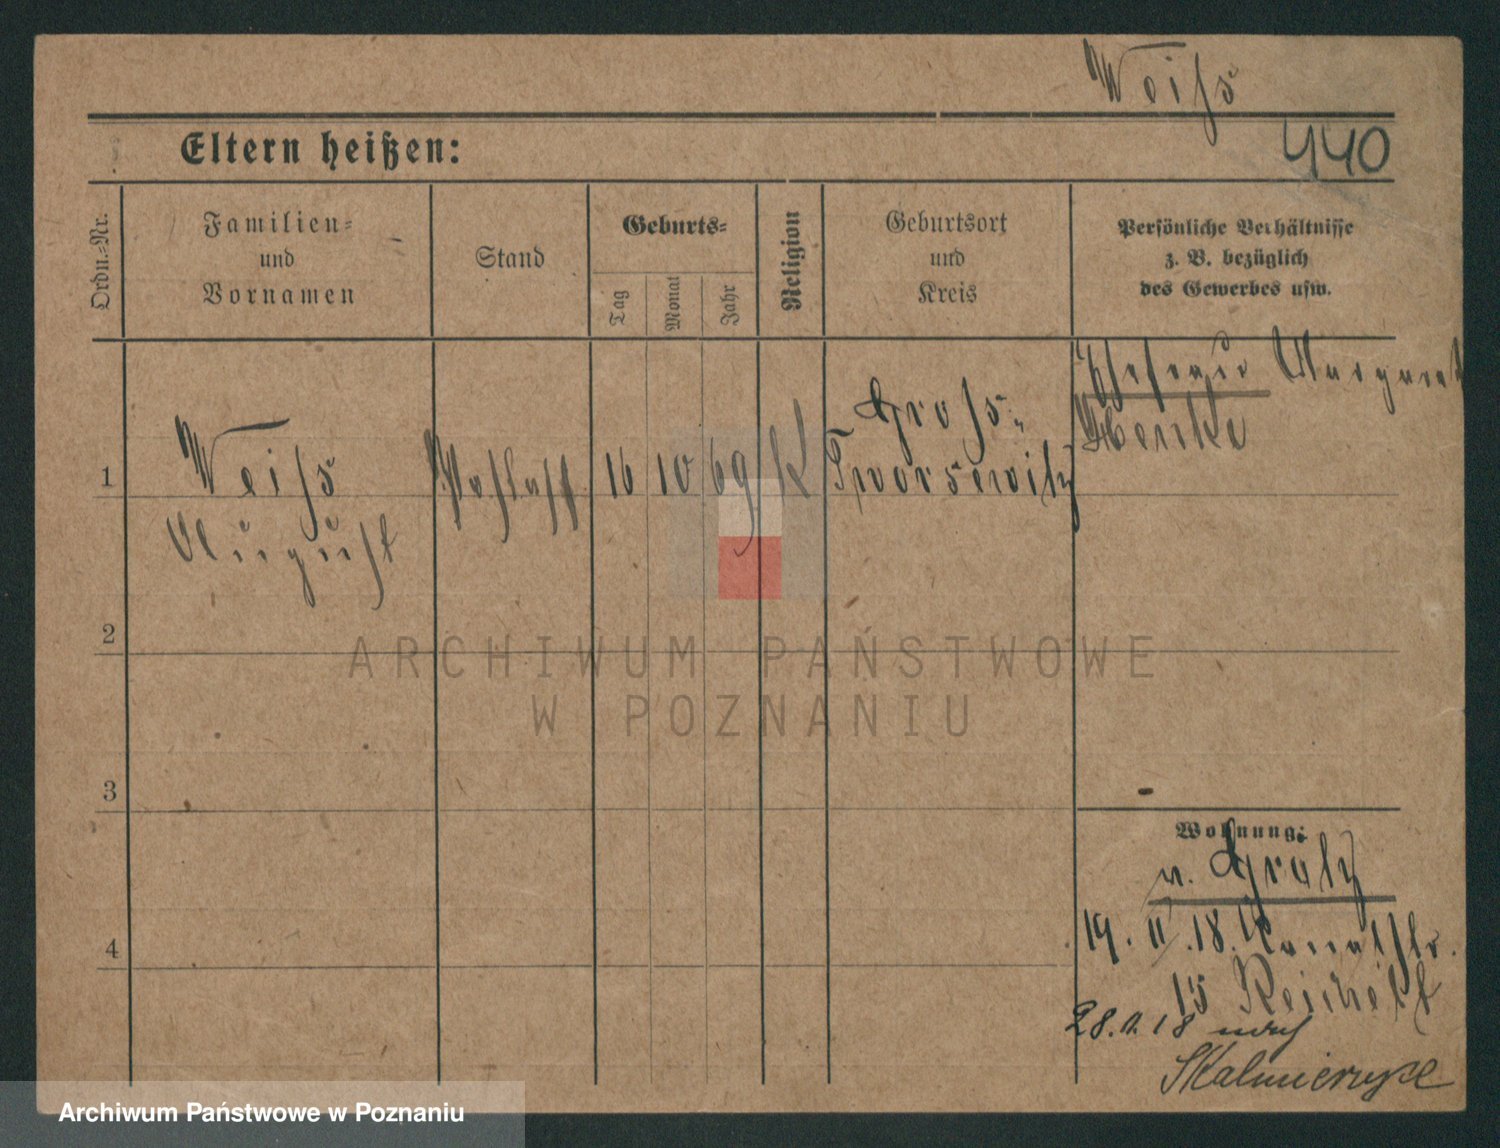 Weiß
440
Eltern heißen:
Ordn.-Nr.
Familien-
und
Vornamen
Stand
Geburts-
Tag
Monat
Jahr
Religion
Geburtsort
und
Kreis
Persönliche Verhältnisse
z. B. bezüglich
des Gewerbes usw.
Ehefrau Margaret
Henke
1
Weiß
August
16
10
69
K
Groß-
2
3
4
Wohnung:
v. Grätz
19. II. 18.
15
28. II. 18 nach
Skalmierzyce
ARCHIWUM PAŃSTWOWE
W POZNANIU
Archiwum Państwowe w Poznaniu